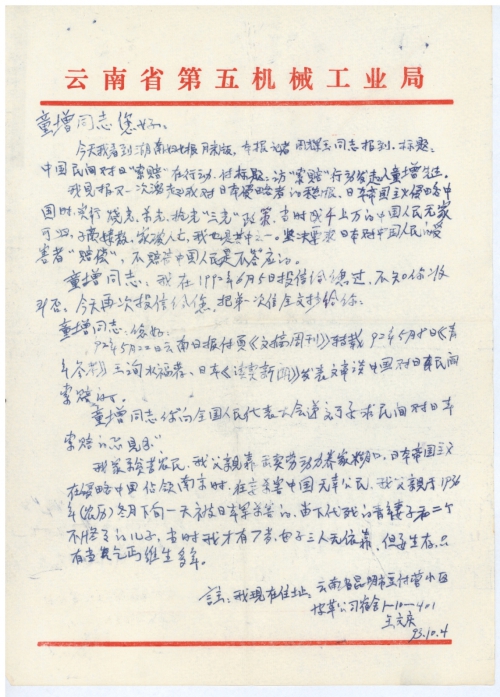 云南省第五机械工业局
童增同志您好。
今天我看到湖南妇女报月末版,本报记者周辉玉同志报到、标题:
中国民间对日“索赔”在行动,付标题:访“索赔”行动发起人童增先生。
我见报又一次激起我对日本侵略者的仇恨,日本帝国主义侵略中
国时,实行烧光、杀光、抢光“三光”政策,当时成千上万的中国人民无家
可归,子散,家破人亡,我也是其中之一。坚决要求日本对中国人民的受
害者“赔偿”,不赔偿中国人民是不答应的。
童增同志:我在1992年6月5日投信给您过,不知你收
到否,今天再次投信给您,把第一次信全文抄给你:
童增同志:你好:
92年5月22日云南日报付页《文摘周刊》摘载92年5月8日《青
年参考》三洵水福荐、日本《读卖新闻》发表文章谈中国对日本民间
索赔的。
童增同志你向全国人民代表大会递交了要求民间对日本
索赔的意见书”
我家贫苦农民,我父亲靠卖劳动力养家糊口,日本帝国主义
在侵略中国占领南京时,在京杀害中国无辜公民,我父亲于1936
年(农历)冬月下旬一天被日本军杀害的,当下代我的母亲妻子和二个
不懂事的儿子,当时我才有7岁,母子三人无依靠,但要生存,只
有当乞丐维生多年。
言:我现在住址:云南省昆明市豆付营小区
皮革公司宿舍1-10-401
王文
93.10.4